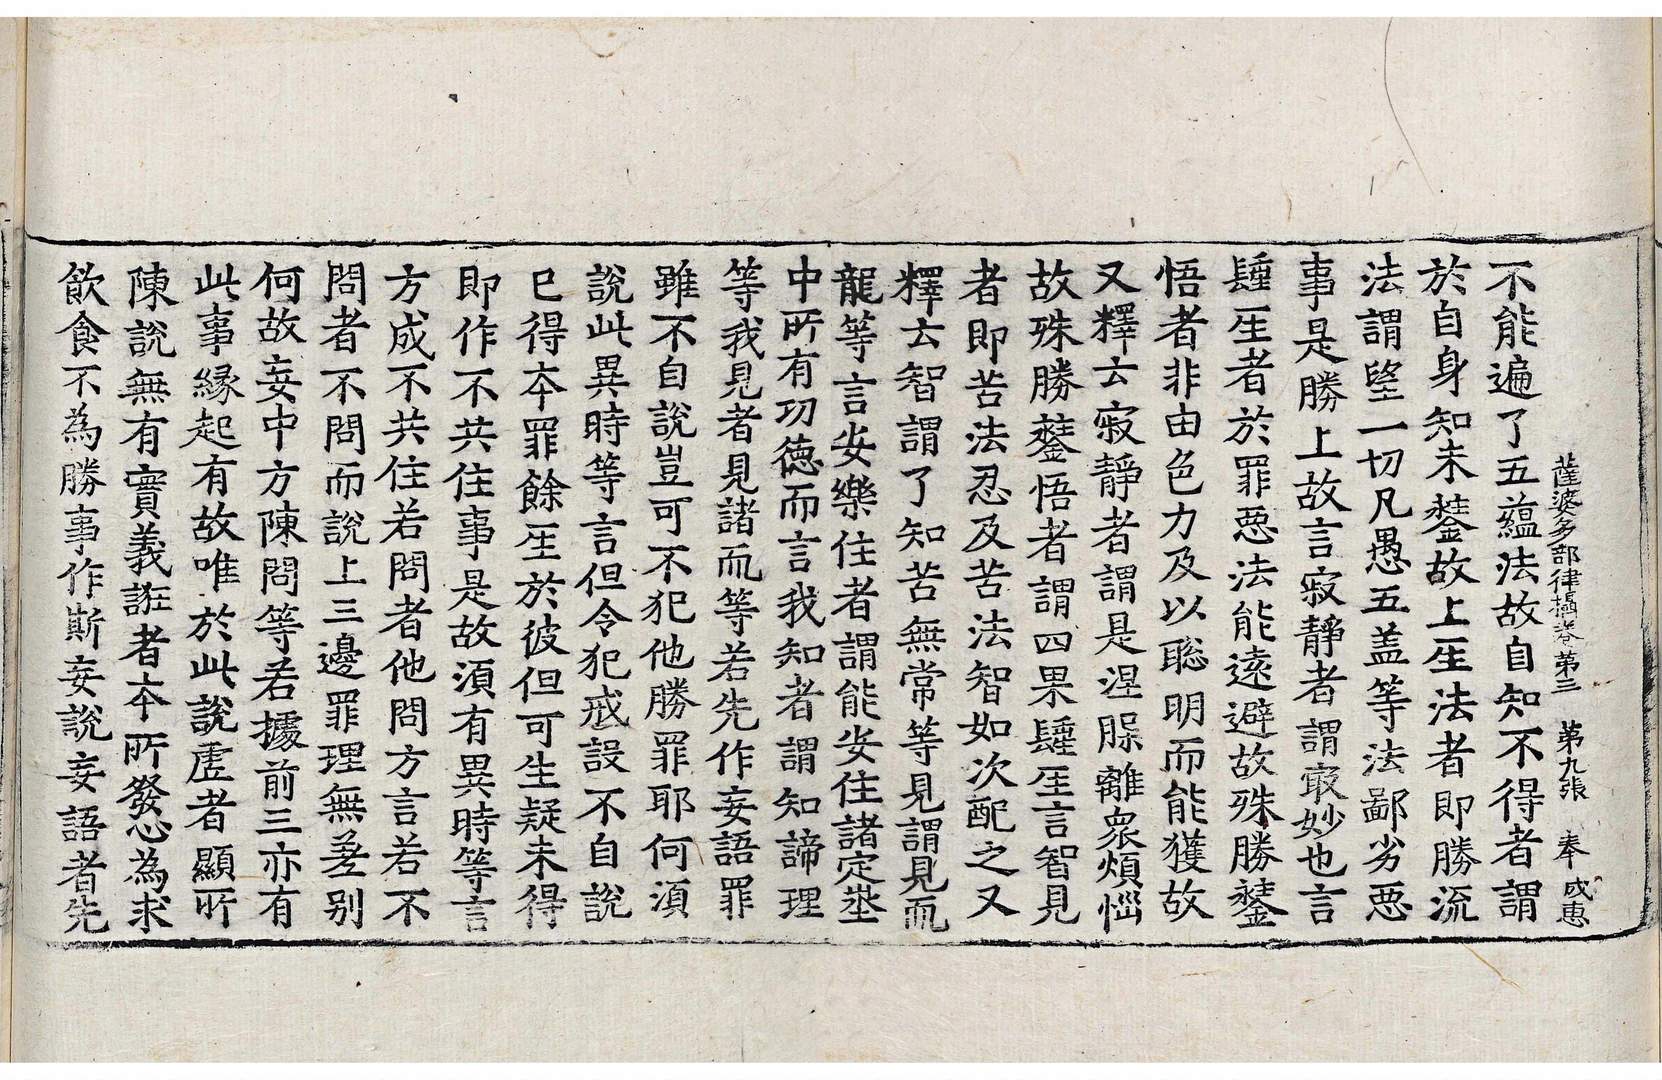 薩婆多部律攝卷第三　第九張　奉　成惠
不能遍了五蘊法故自知不得者謂
於自身知未𨭻故上𤯔法者即勝流
法謂望一切凡愚五盖等法鄙劣惡
事是勝上故言寂靜者謂㝡妙也言
𨲢𤯔者於罪惡法能遠避故殊勝𨭻
悟者非由色力及以聡明而能獲故
又釋云寂靜者謂是涅槃離衆煩惱
故殊勝𨭻悟者謂四果𨲢𤯔言智見
者即苦法忍及苦法智如次配之又
釋云智謂了知苦無常等見謂見𠀑
龍等言安樂住者謂能安住諸定埊
中所有功德而言我知者謂知諦理
等我見者見諸𠀑等若先作妄語罪
雖不自說豈可不犯他勝罪耶何須
說此異時等言但令犯戒設不自說
已得本罪餘𤯔於彼但可生疑未得
即作不共住事是故須有異時等言
方成不共住若問者他問方言若不
問者不問而說上三邊罪理無差别
何故妄中方陳問等若據前三亦有
此事緣起有故唯於此說虛者顯所
陳說無有實義誑者本所發心為求
飲食不為勝事作斯妄說妄語者先